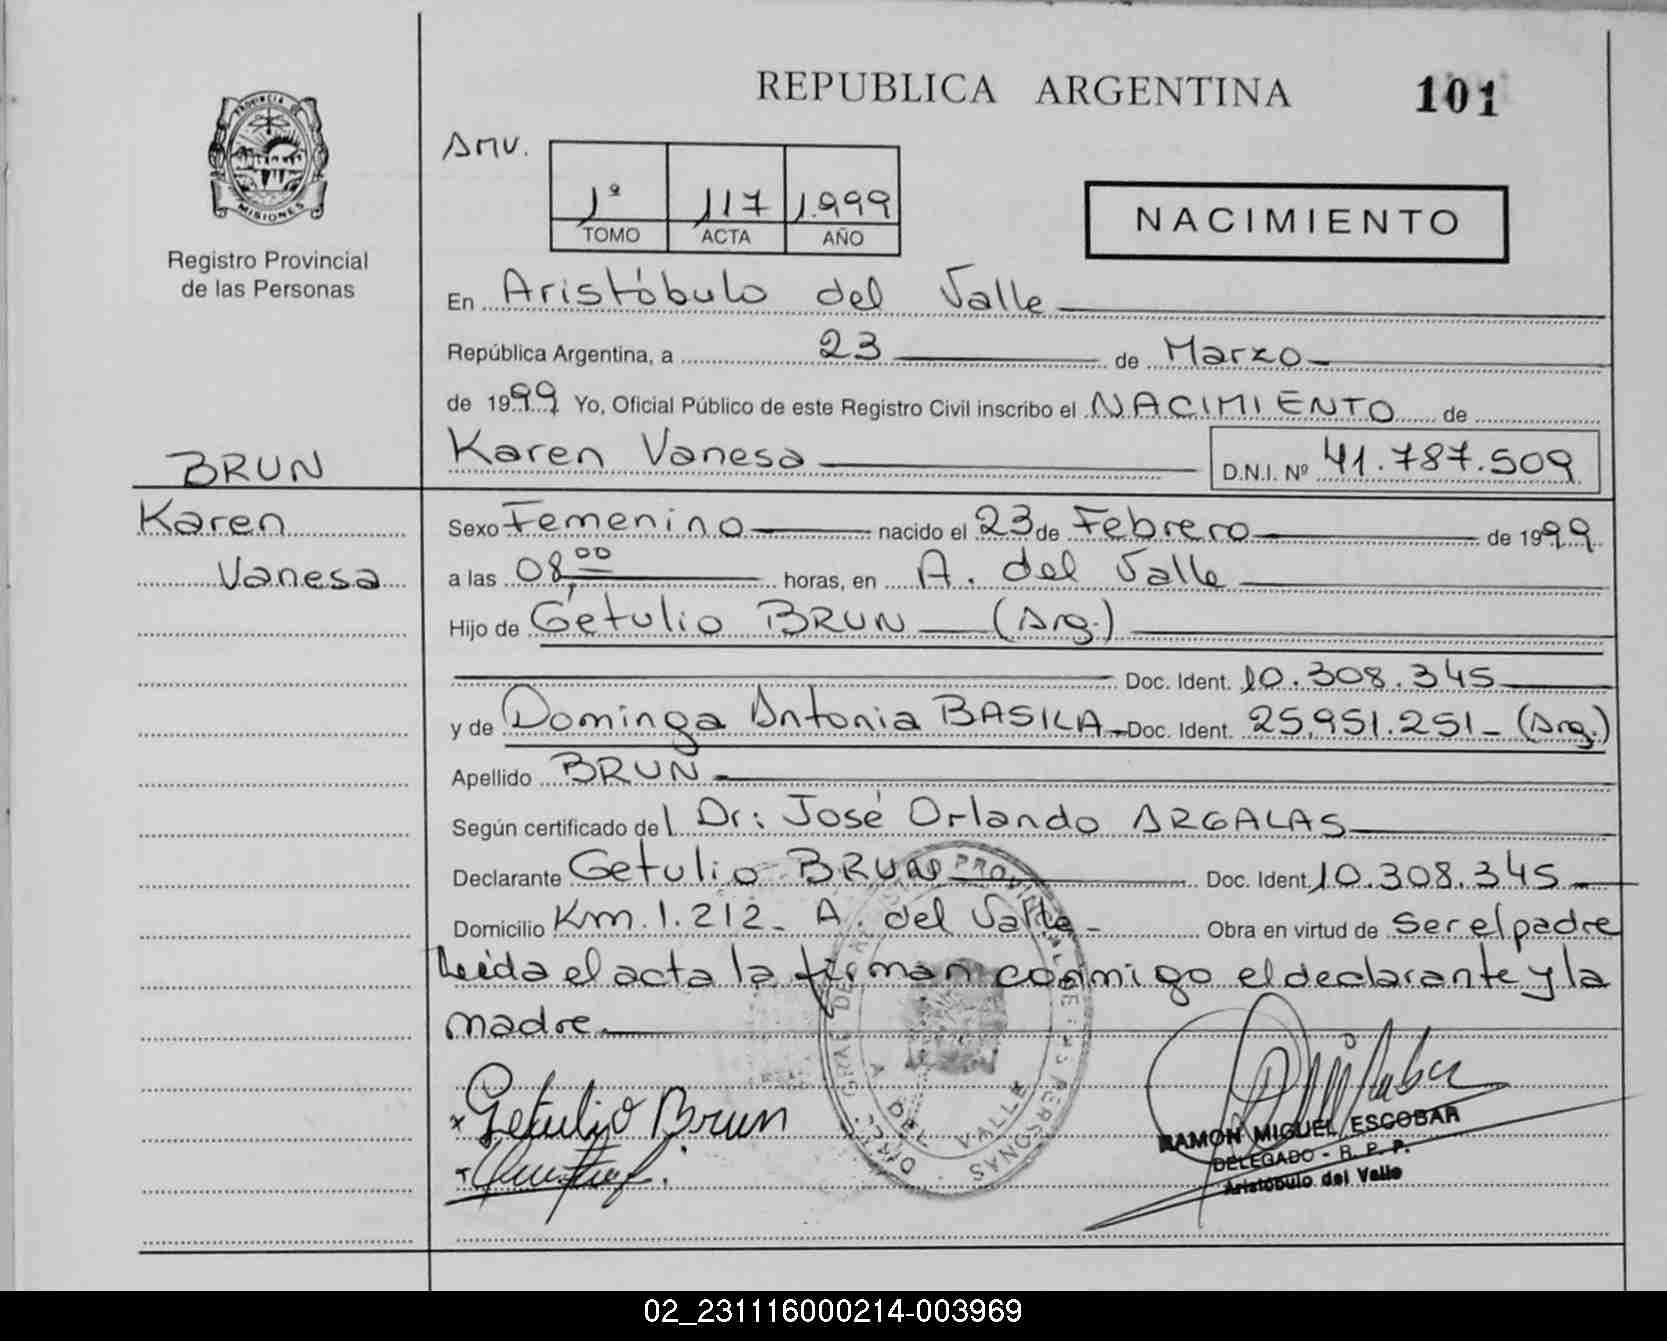 REPUBLICA ARGENTINA
101
PROVINCIA
MISIONES
Registro Provincial
de las Personas
Amv.
1º 117 1.999
TOMO ACTA AÑO
NACIMIENTO
En Aristóbulo del Valle
República Argentina, a 23 de Marzo
de 1999 Yo, Oficial Público de este Registro Civil inscribo el NACIMIENTO de
Karen Vanesa D.N.I. Nº 41.787.509
BRUN
Karen
Vanesa
Sexo Femenino nacido el 23 de Febrero de 1999
a las 08,00 horas, en A. del Valle
Hijo de Getulio BRUN (Arg.)
Doc. Ident. 10.308.345
y de Dominga Antonia BASILA Doc. Ident. 25.951.251 - (Arg.)
Apellido BRUN
Según certificado del Dr: José Orlando ARGALAS
Declarante Getulio BRUN Doc. Ident. 10.308.345
Domicilio Km. 1.212 - A. del Valle - Obra en virtud de ser el padre
Leída el acta la firman conmigo el declarante y la
madre
x Getulio Brun
RAMON MIGUEL ESCOBAR
DELEGADO - R. P. P.
Aristóbulo del Valle
A. DEL VALLE
02_231116000214-003969